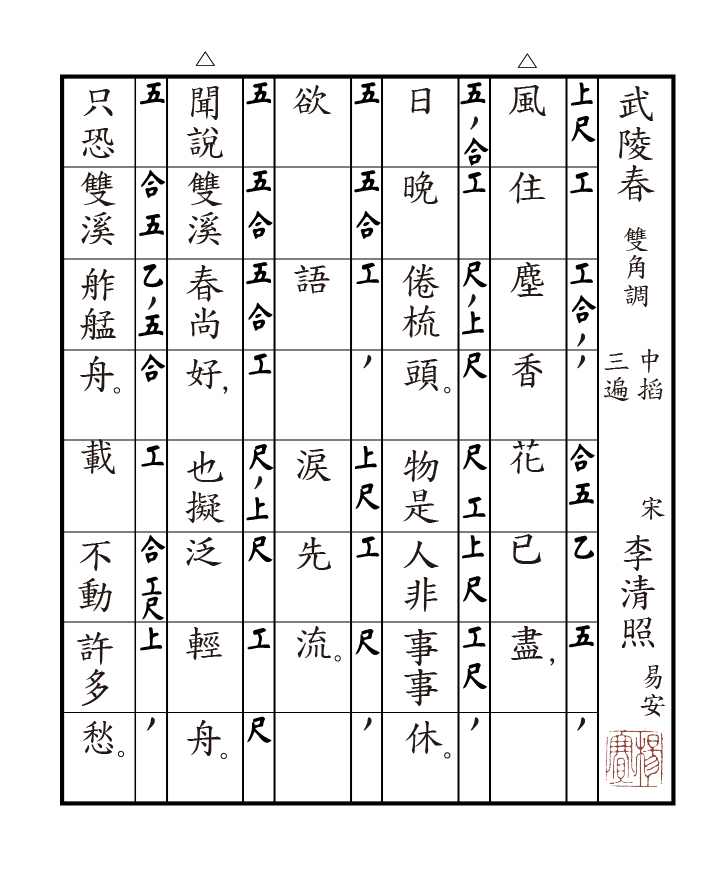 武陵春 雙角調 中搯 三遍 宋 李清照 易安
△
上尺 工 工合，， 合五 乙 五 ，
風住塵香花已盡，
五，合 工 尺，上 尺 尺工 上尺 工尺 ，
日晚倦梳頭。物是人非事事休。
五 五合 工 ， 上尺 工 尺 ，
欲語淚先流。
△
五 五合 五合 工 尺，上 尺 工 尺
聞說雙溪春尚好，也擬泛輕舟。
五 合五 乙，五 合 工 合工尺 上 ，
只恐雙溪舴艋舟。載不動許多愁。